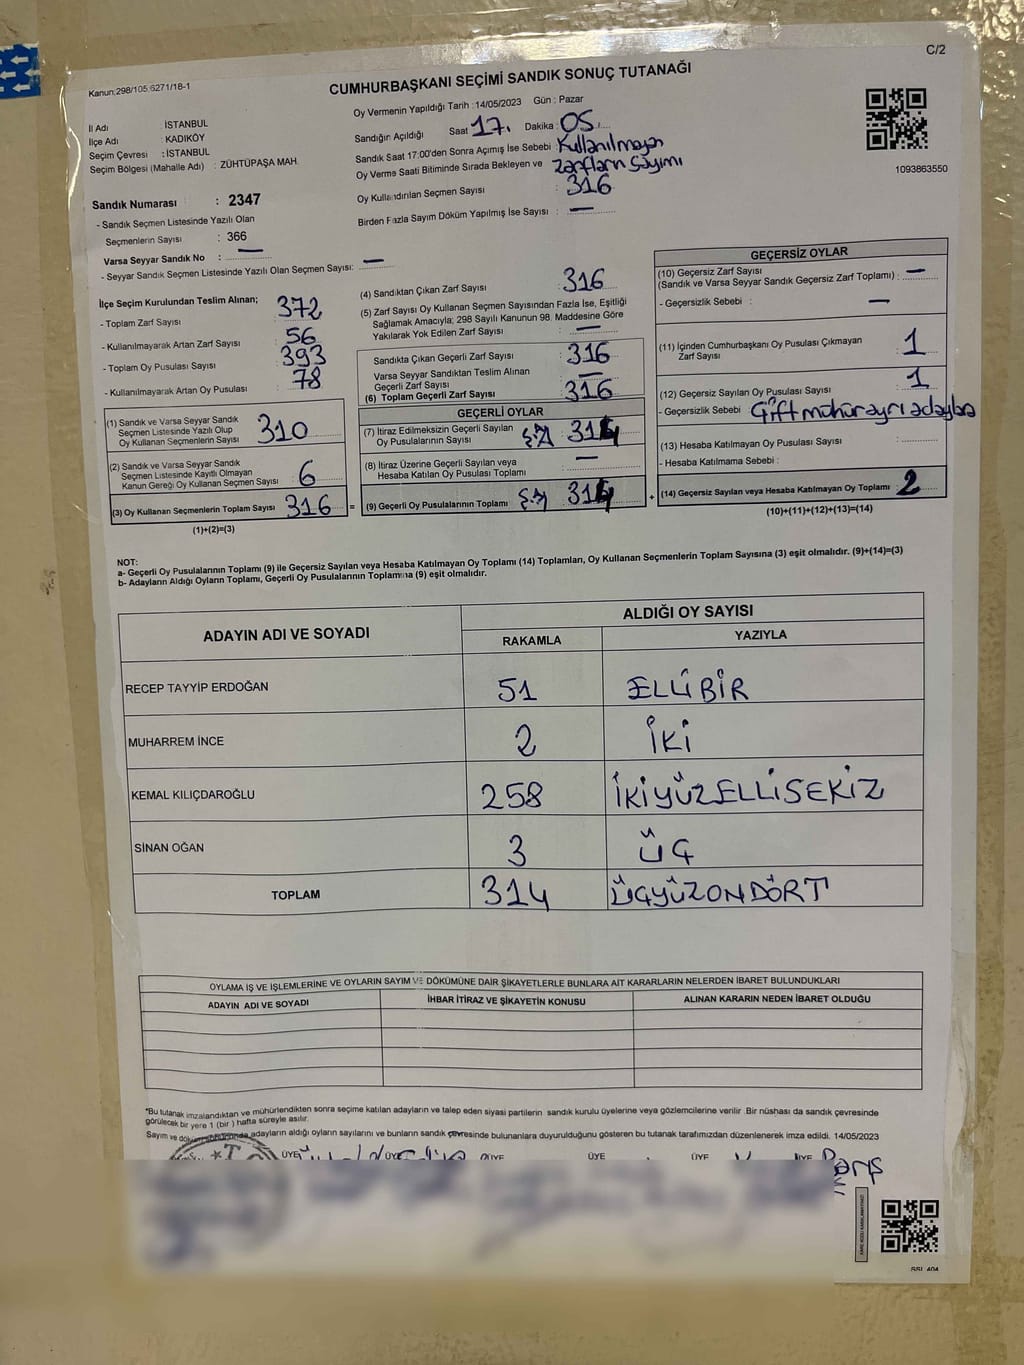 C/2
Kanun;298/105,6271/18-1
CUMHURBAŞKANI SEÇİMİ SANDIK SONUÇ TUTANAĞI
İl Adı İSTANBUL
İlçe Adı : KADIKÖY
Seçim Çevresi : İSTANBUL
Seçim Bölgesi (Mahalle Adı) : ZÜHTÜPAŞA MAH.
Oy Vermenin Yapıldığı Tarih : 14/05/2023 Gün : Pazar
Sandığın Açıldığı Saat 17. Dakika : 05
Sandık Saat 17:00'den Sonra Açımış İse Sebebi : Kullanılmayan
Oy Verme Saati Bitiminde Sırada Bekleyen ve zarfların sayımı
Oy Kullandırılan Seçmen Sayısı : 316
Birden Fazla Sayım Döküm Yapılmış İse Sayısı : —
1093863550
Sandık Numarası : 2347
- Sandık Seçmen Listesinde Yazılı Olan
Seçmenlerin Sayısı : 366
Varsa Seyyar Sandık No : —
- Seyyar Sandık Seçmen Listesinde Yazılı Olan Seçmen Sayısı: —
İlçe Seçim Kurulundan Teslim Alınan;
- Toplam Zarf Sayısı : 372
- Kullanılmayarak Artan Zarf Sayısı : 56
- Toplam Oy Pusulası Sayısı : 393
- Kullanılmayarak Artan Oy Pusulası : 78
(1) Sandık ve Varsa Seyyar Sandık
Seçmen Listesinde Yazılı Olup
Oy Kullanan Seçmenlerin Sayısı : 310
(2) Sandık ve Varsa Seyyar Sandık
Seçmen Listesinde Kayıtlı Olmayan
Kanun Gereği Oy Kullanan Seçmen Sayısı : 6
(3) Oy Kullanan Seçmenlerin Toplam Sayısı : 316 =
(1)+(2)=(3)
(4) Sandıktan Çıkan Zarf Sayısı : 316
(5) Zarf Sayısı Oy Kullanan Seçmen Sayısından Fazla İse, Eşitliği
Sağlamak Amacıyla; 298 Sayılı Kanunun 98. Maddesine Göre
Yakılarak Yok Edilen Zarf Sayısı : —
Sandıkta Çıkan Geçerli Zarf Sayısı : 316
Varsa Seyyar Sandıktan Teslim Alınan
Geçerli Zarf Sayısı : —
(6) Toplam Geçerli Zarf Sayısı : 316
GEÇERLİ OYLAR
(7) İtiraz Edilmeksizin Geçerli Sayılan
Oy Pusulalarının Sayısı : 314
(8) İtiraz Üzerine Geçerli Sayılan veya
Hesaba Katılan Oy Pusulası Toplamı : —
(9) Geçerli Oy Pusulalarının Toplamı : 314 +
GEÇERSİZ OYLAR
(10) Geçersiz Zarf Sayısı
(Sandık ve Varsa Seyyar Sandık Geçersiz Zarf Toplamı) : —
- Geçersizlik Sebebi : —
(11) İçinden Cumhurbaşkanı Oy Pusulası Çıkmayan
Zarf Sayısı : 1
(12) Geçersiz Sayılan Oy Pusulası Sayısı : 1
- Geçersizlik Sebebi : Çift mühür ayrı adayba
(13) Hesaba Katılmayan Oy Pusulası Sayısı :
- Hesaba Katılmama Sebebi :
(14) Geçersiz Sayılan veya Hesaba Katılmayan Oy Toplamı : 2
(10)+(11)+(12)+(13)=(14)
NOT:
a- Geçerli Oy Pusulalarının Toplamı (9) ile Geçersiz Sayılan veya Hesaba Katılmayan Oy Toplamı (14) Toplamları, Oy Kullanan Seçmenlerin Toplam Sayısına (3) eşit olmalıdır. (9)+(14)=(3)
b- Adayların Aldığı Oyların Toplamı, Geçerli Oy Pusulalarının Toplamına (9) eşit olmalıdır.
ADAYIN ADI VE SOYADI ALDIĞI OY SAYISI
RAKAMLA YAZIYLA
RECEP TAYYİP ERDOĞAN 51 ELLİBİR
MUHARREM İNCE 2 İKİ
KEMAL KILIÇDAROĞLU 258 İKİYÜZELLİSEKİZ
SİNAN OĞAN 3 ÜÇ
TOPLAM 314 ÜÇYÜZONDÖRT
OYLAMA İŞ VE İŞLEMLERİNE VE OYLARIN SAYIM VE DÖKÜMÜNE DAİR ŞİKAYETLERLE BUNLARA AİT KARARLARIN NELERDEN İBARET BULUNDUKLARI
ADAYIN ADI VE SOYADI İHBAR İTİRAZ VE ŞİKAYETİN KONUSU ALINAN KARARIN NEDEN İBARET OLDUĞU
*Bu tutanak imzalandıktan ve mühürlendikten sonra seçime katılan adayların ve talep eden siyasi partilerin sandık kurulu üyelerine veya gözlemcilerine verilir .Bir nüshası da sandık çevresinde
görülecek bir yere 1 (bir ) hafta süreyle asılır.
Sayım ve dökümünde adayların aldığı oyların sayılarını ve bunların sandık çevresinde bulunanlara duyurulduğunu gösteren bu tutanak tarafımızdan düzenlenerek imza edildi. 14/05/2023
ÜYE ÜYE ÜYE ÜYE ÜYE ÜYE
Barış